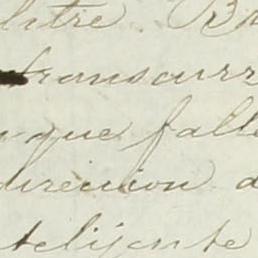 litre. Ba
transcurr
que falle
direccion d
telijente